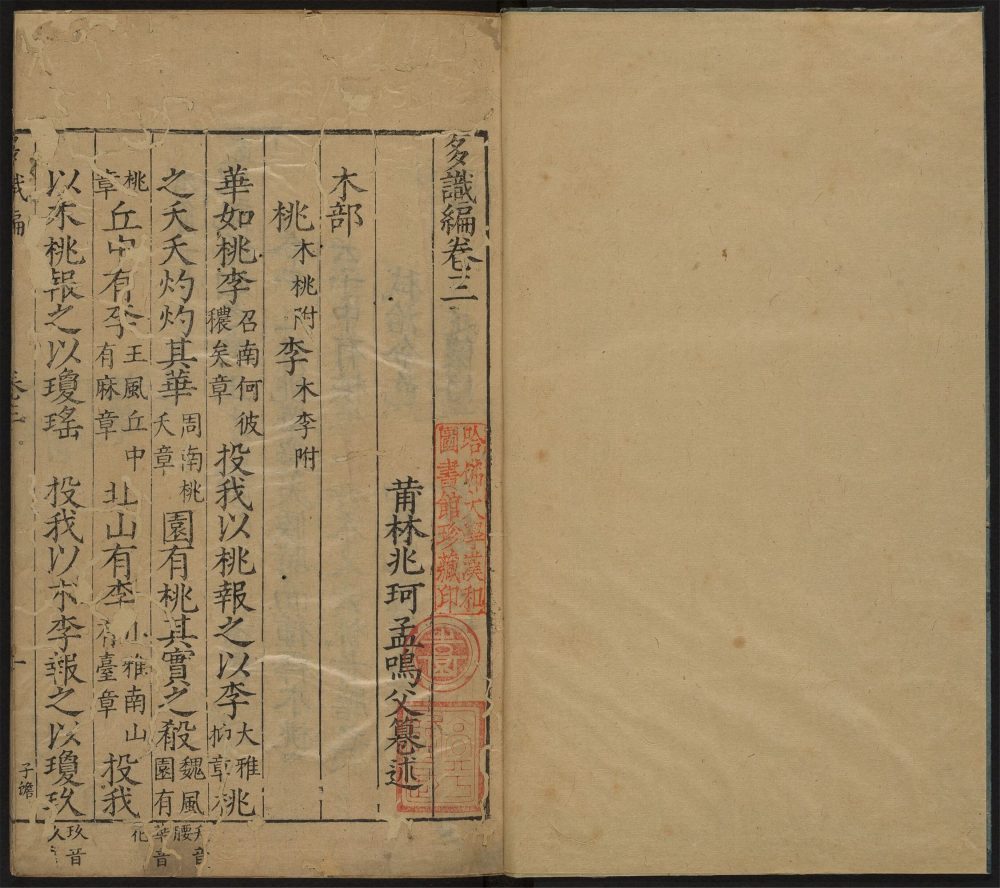 多識編卷三
莆林兆珂孟鳴父纂述
木部
桃木桃附李木李附
華如桃李召南何彼穠矣章投我以桃報之以李大雅抑章桃
之夭夭灼灼其華周南桃夭章園有桃其實之殽魏風園有
桃章丘中有李王風丘中有麻章北山有李小雅南山有臺章投我
以木桃報之以瓊瑤 投我以木李報之以瓊玖
多識編 卷三 一
子蟾
夭音腰
華音花
玖音久
哈佛大學漢和圖書館珍藏印